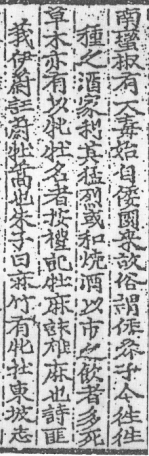 南蠻椒有大毒始自倭國來故俗謂倭芥子今往往
種之酒家利其猛烈或和燒酒以市之飮者多死
草木亦有以牝牡名者按禮記牡麻註雄麻也詩匪
莪伊蔚註蔚牡蒿也朱子曰麻竹有牝牡東坡志